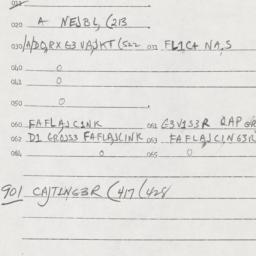 020 A NEJBL, (213
030/A/DQ,RX G3 VA,JKT (522 031 FL1C4 NA,S
040 0
041 0
050 0
060 FAFLA,JC1NK 061 G3V1S3R QAP
062 D1 GROJS3 FAFLA,JC1NK 063 FAFLA,JC1NG3R
064 0 065 0
901 CAJTLNG3R (417 (428